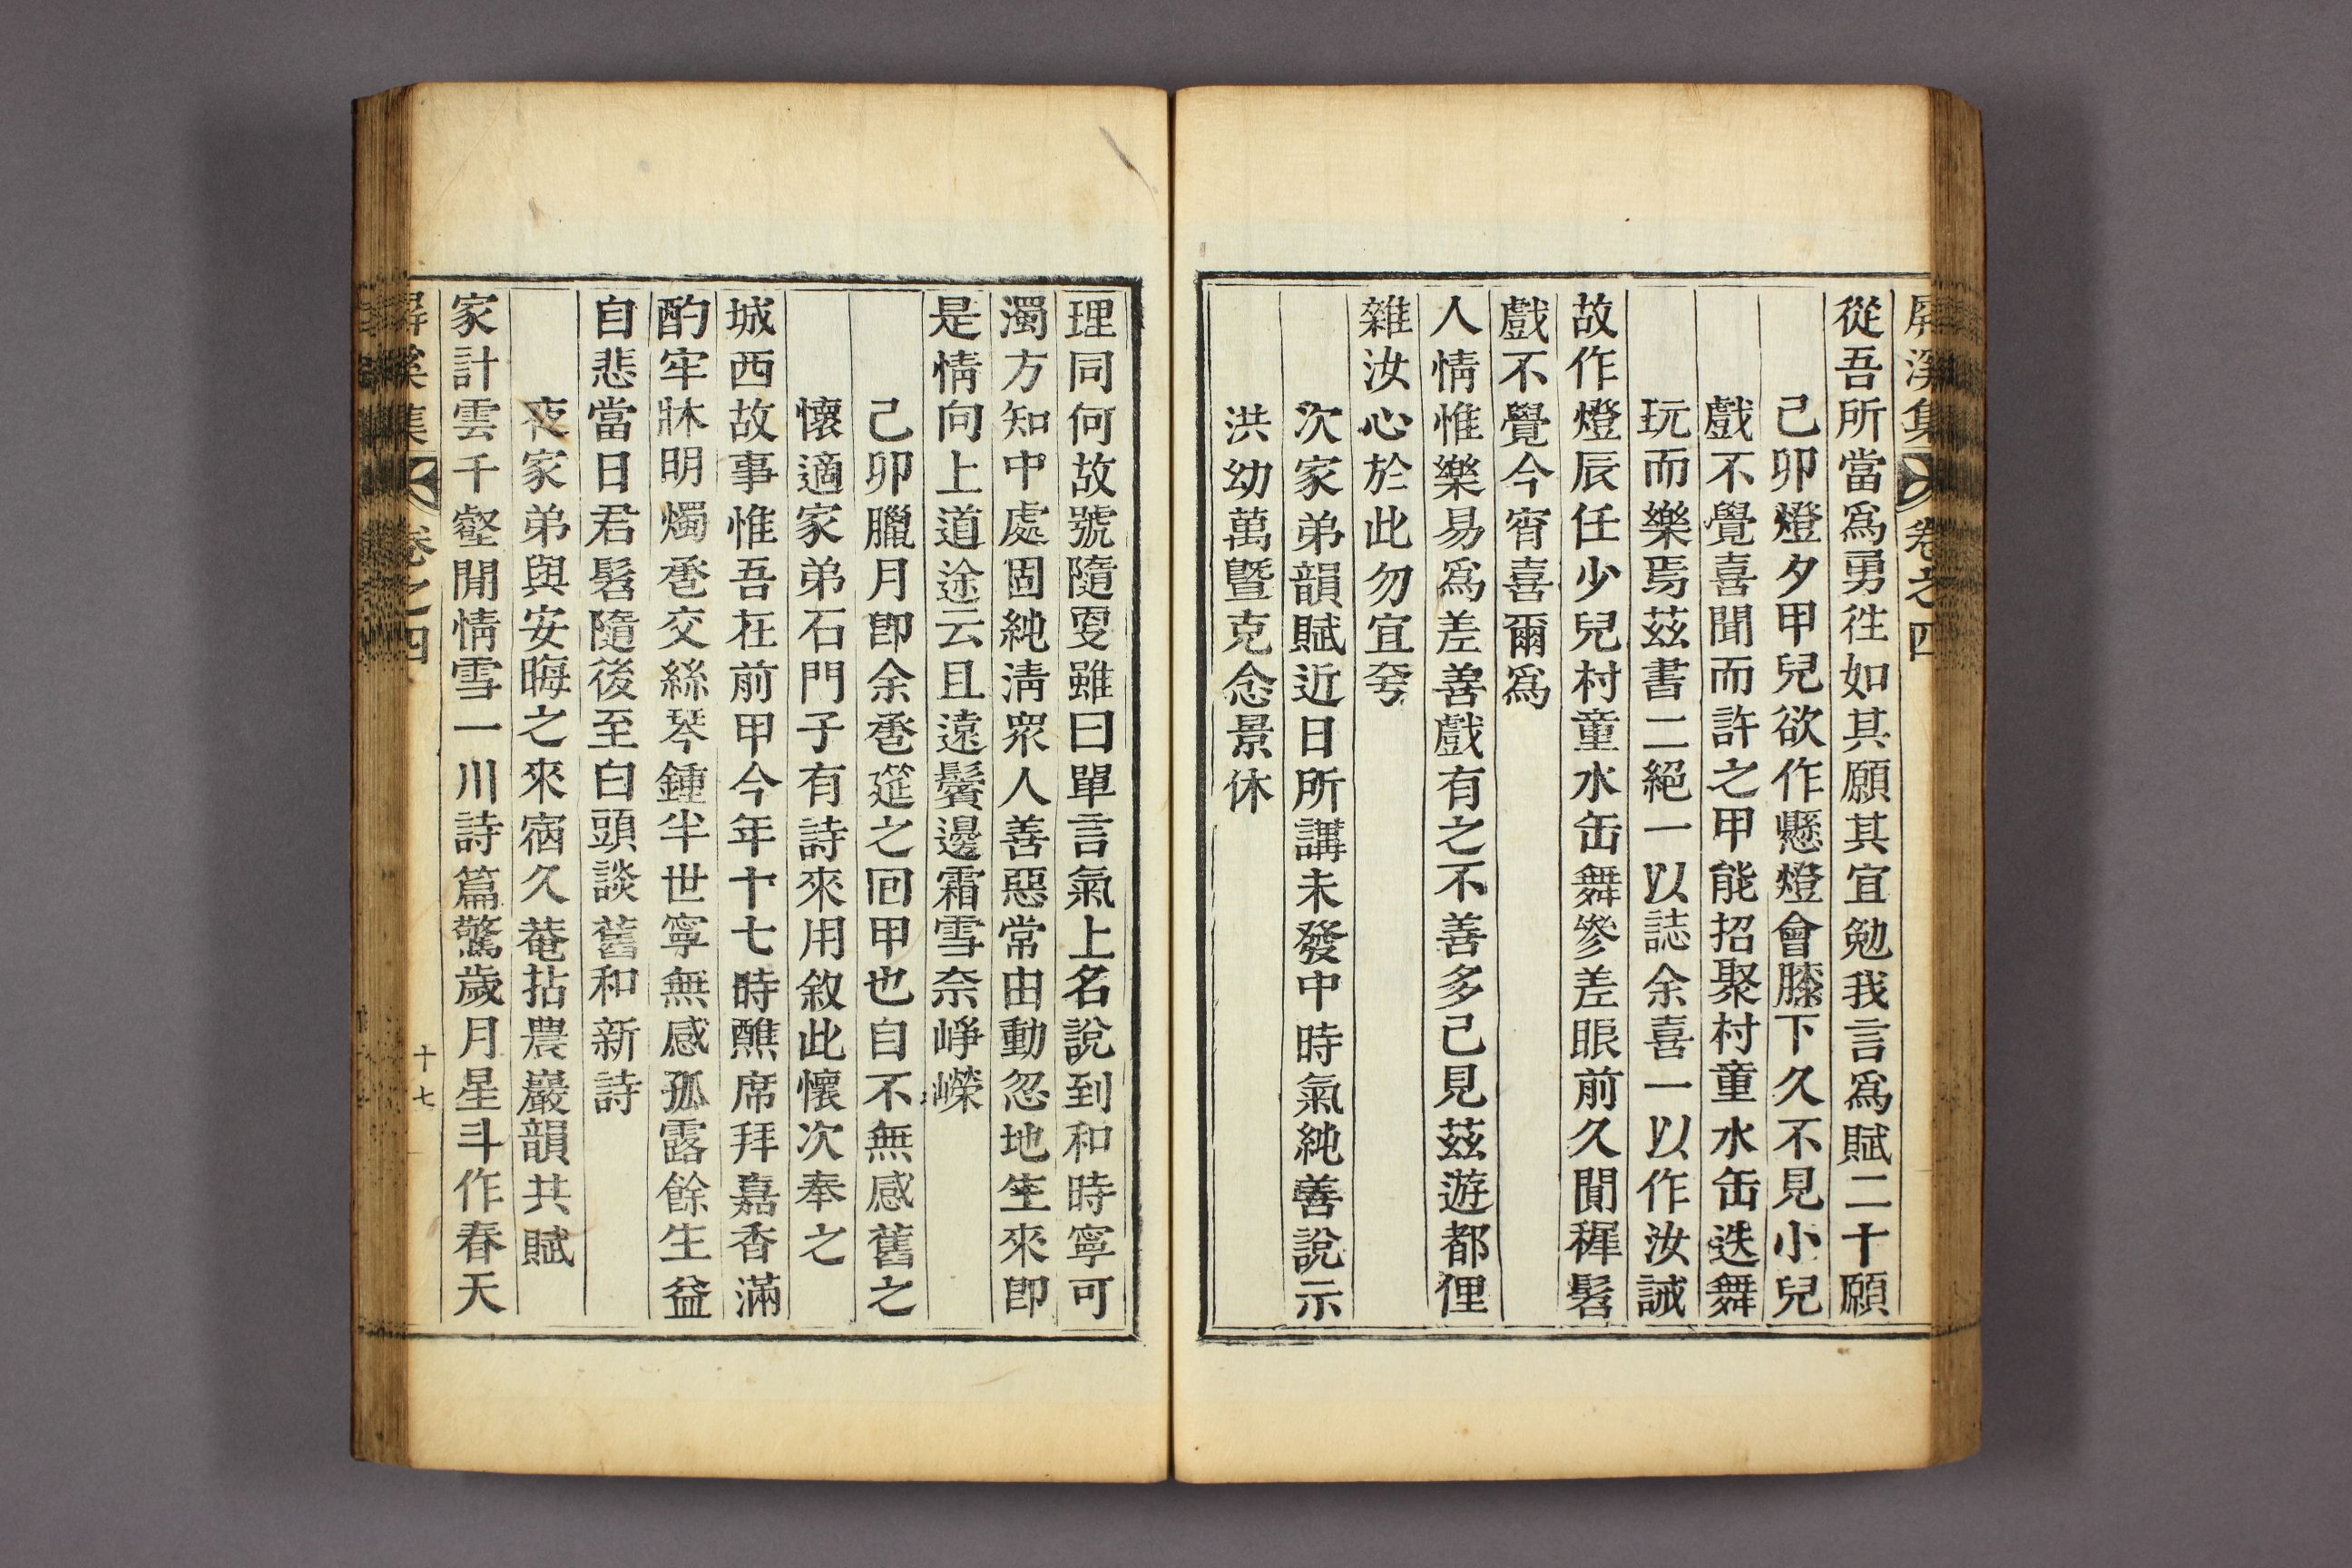 屛溪集 卷之四
從吾所當爲勇徃如其願其宜勉我言爲賦二十願
己卯燈夕甲兒欲作懸燈會膝下久不見小兒
戲不覺喜聞而許之甲能招聚村童水缶迭舞
玩而樂焉茲書二絕一以誌余喜一以作汝誡
故作燈辰任少兒村童水缶舞參差眼前久閴穉髫
戲不覺今宵喜爾爲
人情惟樂易爲差善戲有之不善多己見茲遊都俚
雜汝心於此勿宜夸
次家弟韻賦近日所講未發中時氣純善說示
洪幼萬曁克念景休
理同何故號隨變雖曰單言氣上名說到和時寧可
濁方知中處固純淸衆人善惡常由動忽地生來卽
是情向上道途云且遠鬢邊霜雪奈崢嶸
己卯臘月卽余卺筵之回甲也自不無感舊之
懷適家弟石門子有詩來用敘此懷次奉之
城西故事惟吾在前甲今年十七時醮席拜嘉香滿
酌牢牀明燭卺交絲琴鍾半世寧無感孤露餘生益
自悲當日君髫隨後至白頭談舊和新詩
夜家弟與安晦之來宿久菴拈農巖韻共賦
家計雲千壑閒情雪一川詩篇驚歲月星斗作春天
屛溪集 卷之四 十七